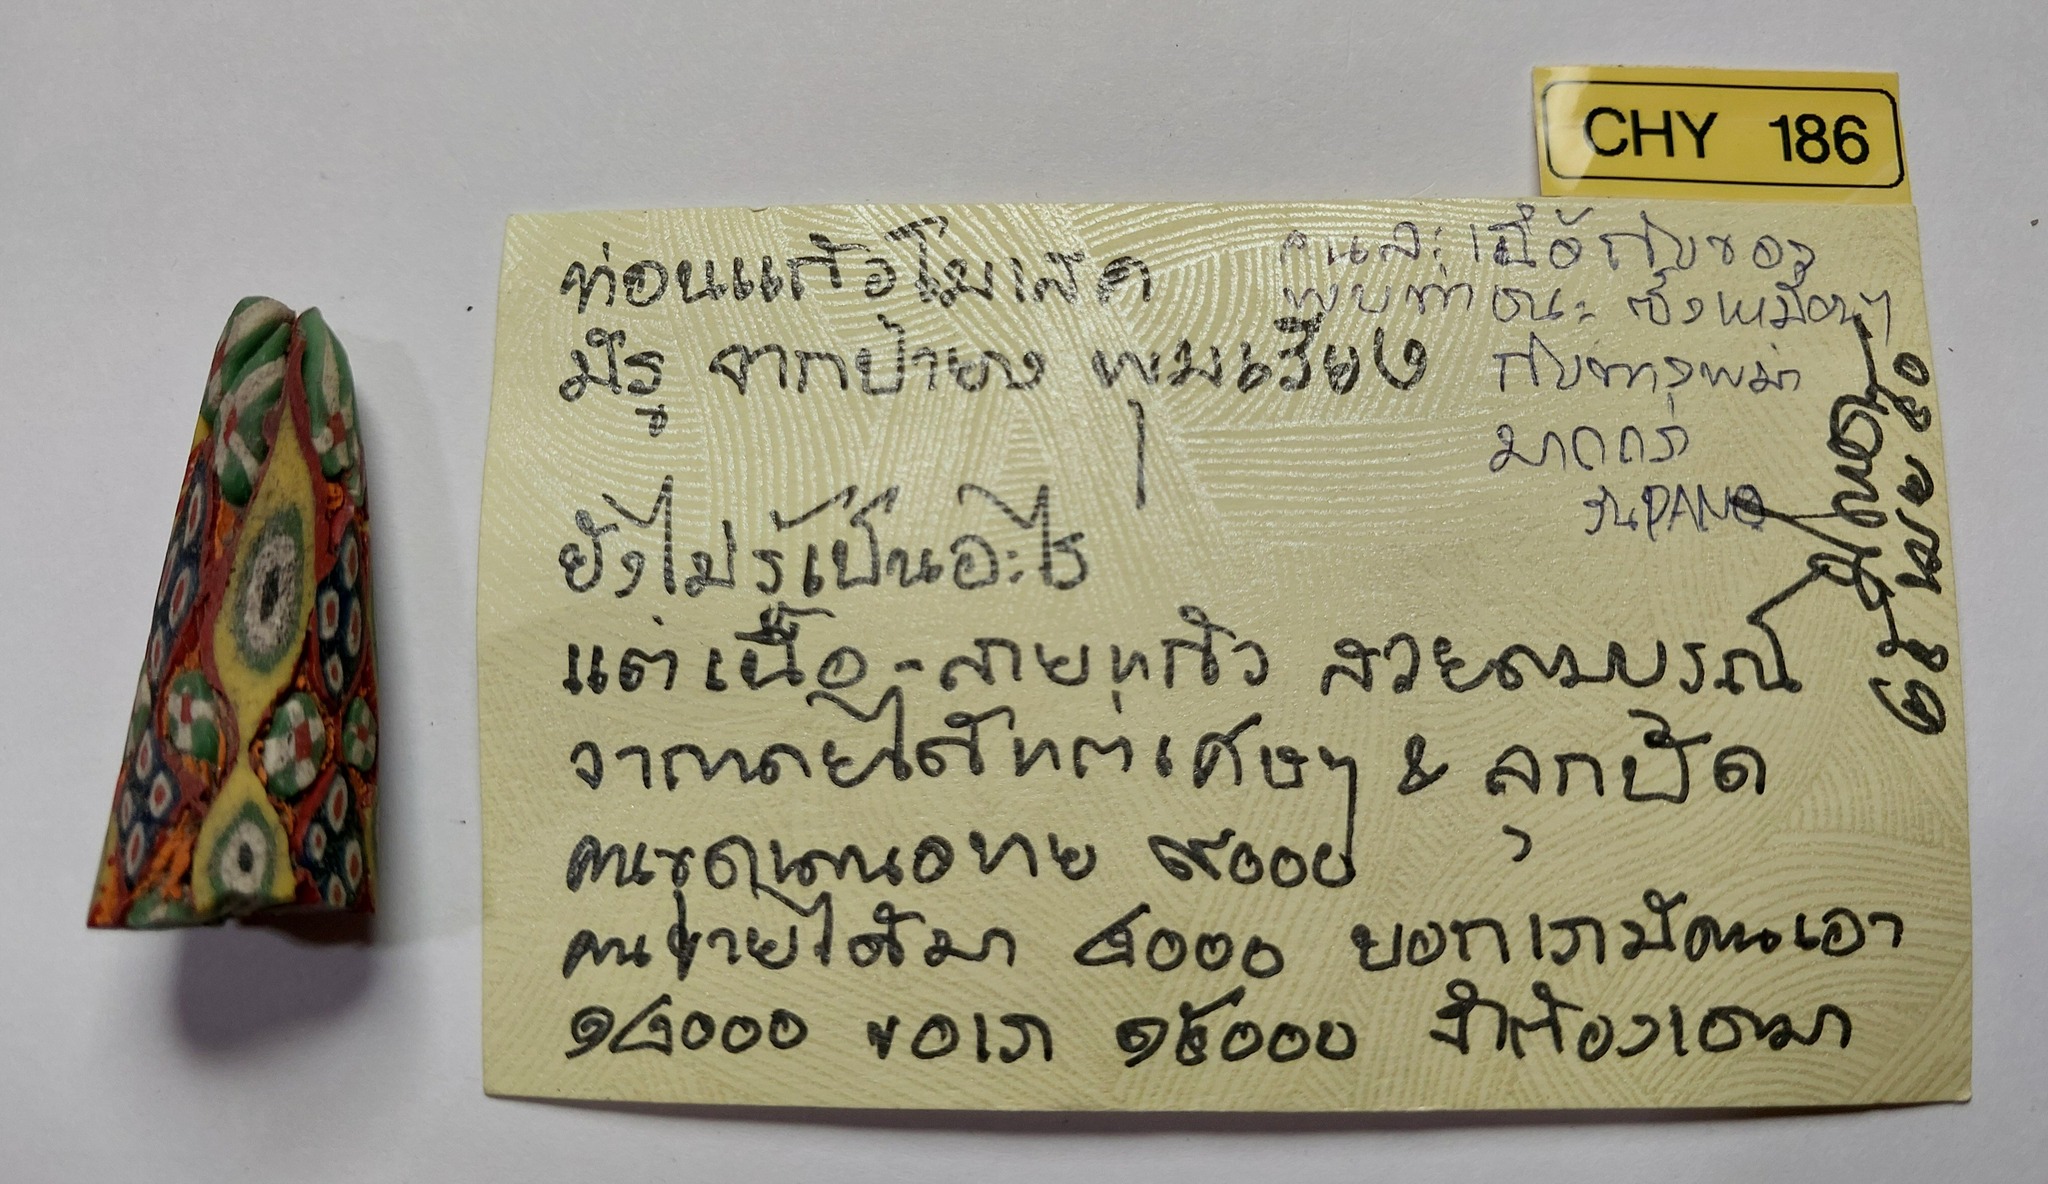 CHY 186
ท่อนแก้วโมเสค
มีรู จากป้ายวง พุมเรียง
คนละเนื้อกับของ
พบท่าชนะ ซึ่งเหมือนๆ
กับทางพม่า
มากกว่า
ยังไม่รู้เป็นอะไร
แต่เนื้อ-ลายแก้ว สวยสมบูรณ์
จากเคยได้แต่เศษๆ & ลูกปัด
คนขุด ๙๐๐๐
คนขายได้มา ๘๐๐๐ บอกเรามีคนเอา
๑๘๐๐๐ ขอเรา ๑๕๐๐๐ จำต้องเอามา
เมษา ๖๐